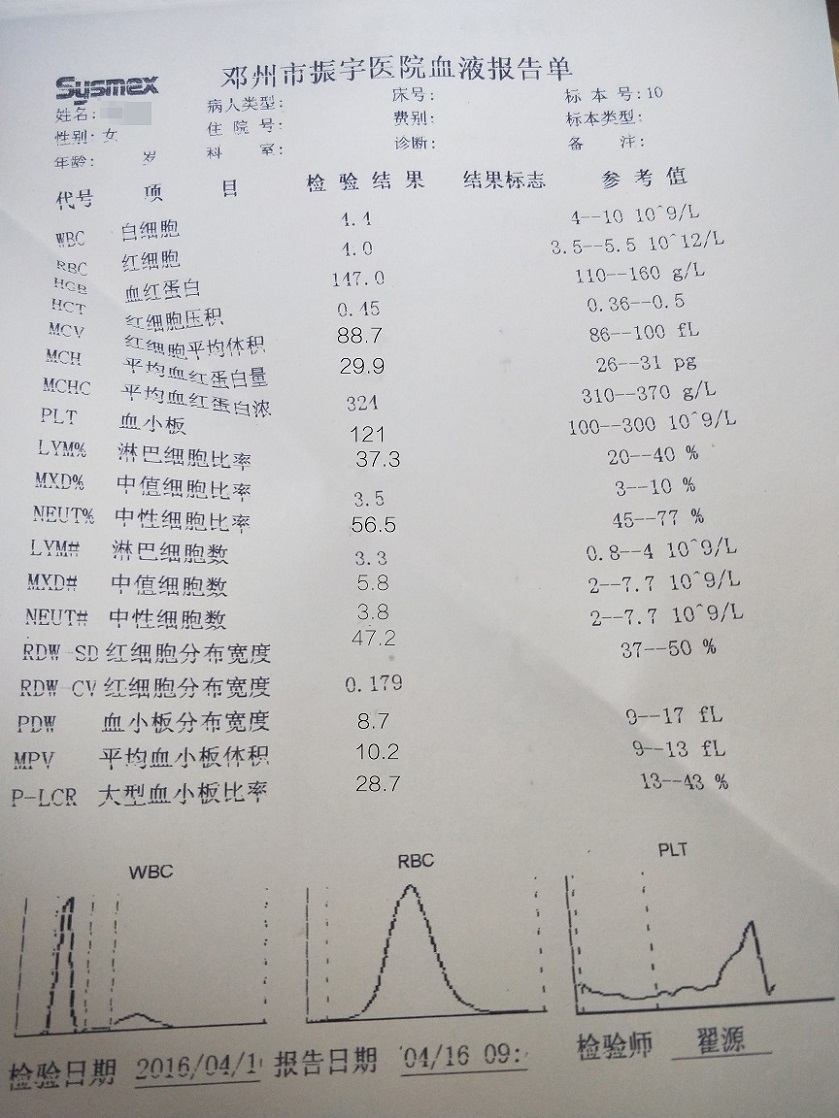 Sysmex 邓州市振宇医院血液报告单
姓名: 病人类型: 床号: 标本号:10
性别:女 住院号: 费别: 标本类型:
年龄: 岁 科室: 诊断: 备注:
代号 项目 检验结果 结果标志 参考值
WBC 白细胞 4.4 4--10 10^9/L
RBC 红细胞 4.0 3.5--5.5 10^12/L
HGB 血红蛋白 147.0 110--160 g/L
HCT 红细胞压积 0.45 0.36--0.5
MCV 红细胞平均体积 88.7 86--100 fL
MCH 平均血红蛋白量 29.9 26--31 pg
MCHC 平均血红蛋白浓 324 310--370 g/L
PLT 血小板 121 100--300 10^9/L
LYM% 淋巴细胞比率 37.3 20--40 %
MXD% 中值细胞比率 3.5 3--10 %
NEUT% 中性细胞比率 56.5 45--77 %
LYM# 淋巴细胞数 3.3 0.8--4 10^9/L
MXD# 中值细胞数 5.8 2--7.7 10^9/L
NEUT# 中性细胞数 3.8 2--7.7 10^9/L
RDW-SD 红细胞分布宽度 47.2 37--50 %
RDW-CV 红细胞分布宽度 0.179
PDW 血小板分布宽度 8.7 9--17 fL
MPV 平均血小板体积 10.2 9--13 fL
P-LCR 大型血小板比率 28.7 13--43 %
WBC RBC PLT
检验日期 2016/04/1 报告日期 04/16 09: 检验师 翟源